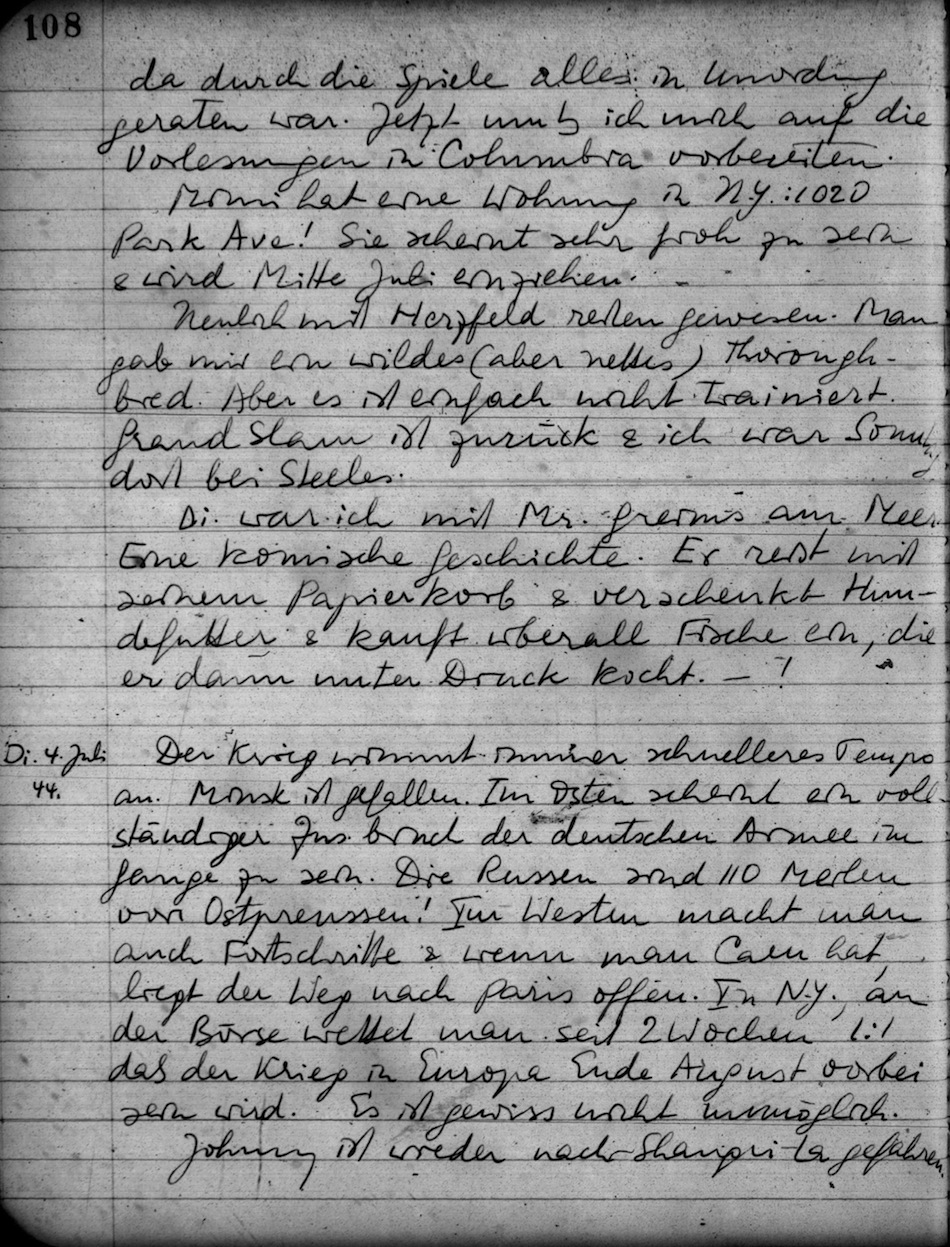 108
da durch die Spiele alles in Unordnung
geraten war. Jetzt muß ich mich auf die
Vorlesungen in Columbia vorbereiten.
Mimi hat eine Wohnung in N.Y.: 1020
Park Ave! Sie scheint sehr froh zu sein
& wird Mitte Juli einziehen. –
Neulich mit Herzfeld reiten gewesen. Man
gab mir ein wildes (aber nettes) Thorough-
bred. Aber es ist einfach nicht trainiert.
Grand Slam ist zurück & ich war Sonntag
dort bei Steeles.
Di. war ich mit Mr. am Meer.
Eine komische Geschichte. Er reist mit
seinem Papierkorb & verschenkt Hun-
defutter & kauft überall Fische ein, die
er dann unter Druck kocht. – !
Di. 4. Juli
44.
Der Krieg nimmt immer schnelleres Tempo
an. Minsk ist gefallen. Im Osten scheint ein voll
ständiger Zus.bruch der deutschen Armee im
Gange zu sein. Die Russen sind 110 Meilen
von Ostpreussen! Im Westen macht man
auch Fortschritte & wenn man Caen hat,
liegt der Weg nach Paris offen. In N.Y., an
der Börse wettet man seit 2 Wochen 1:1
daß der Krieg in Europa Ende August vorbei
sein wird. Es ist gewiss nicht unmöglich.
Johnny ist wieder nach Shangri-La gefahren.